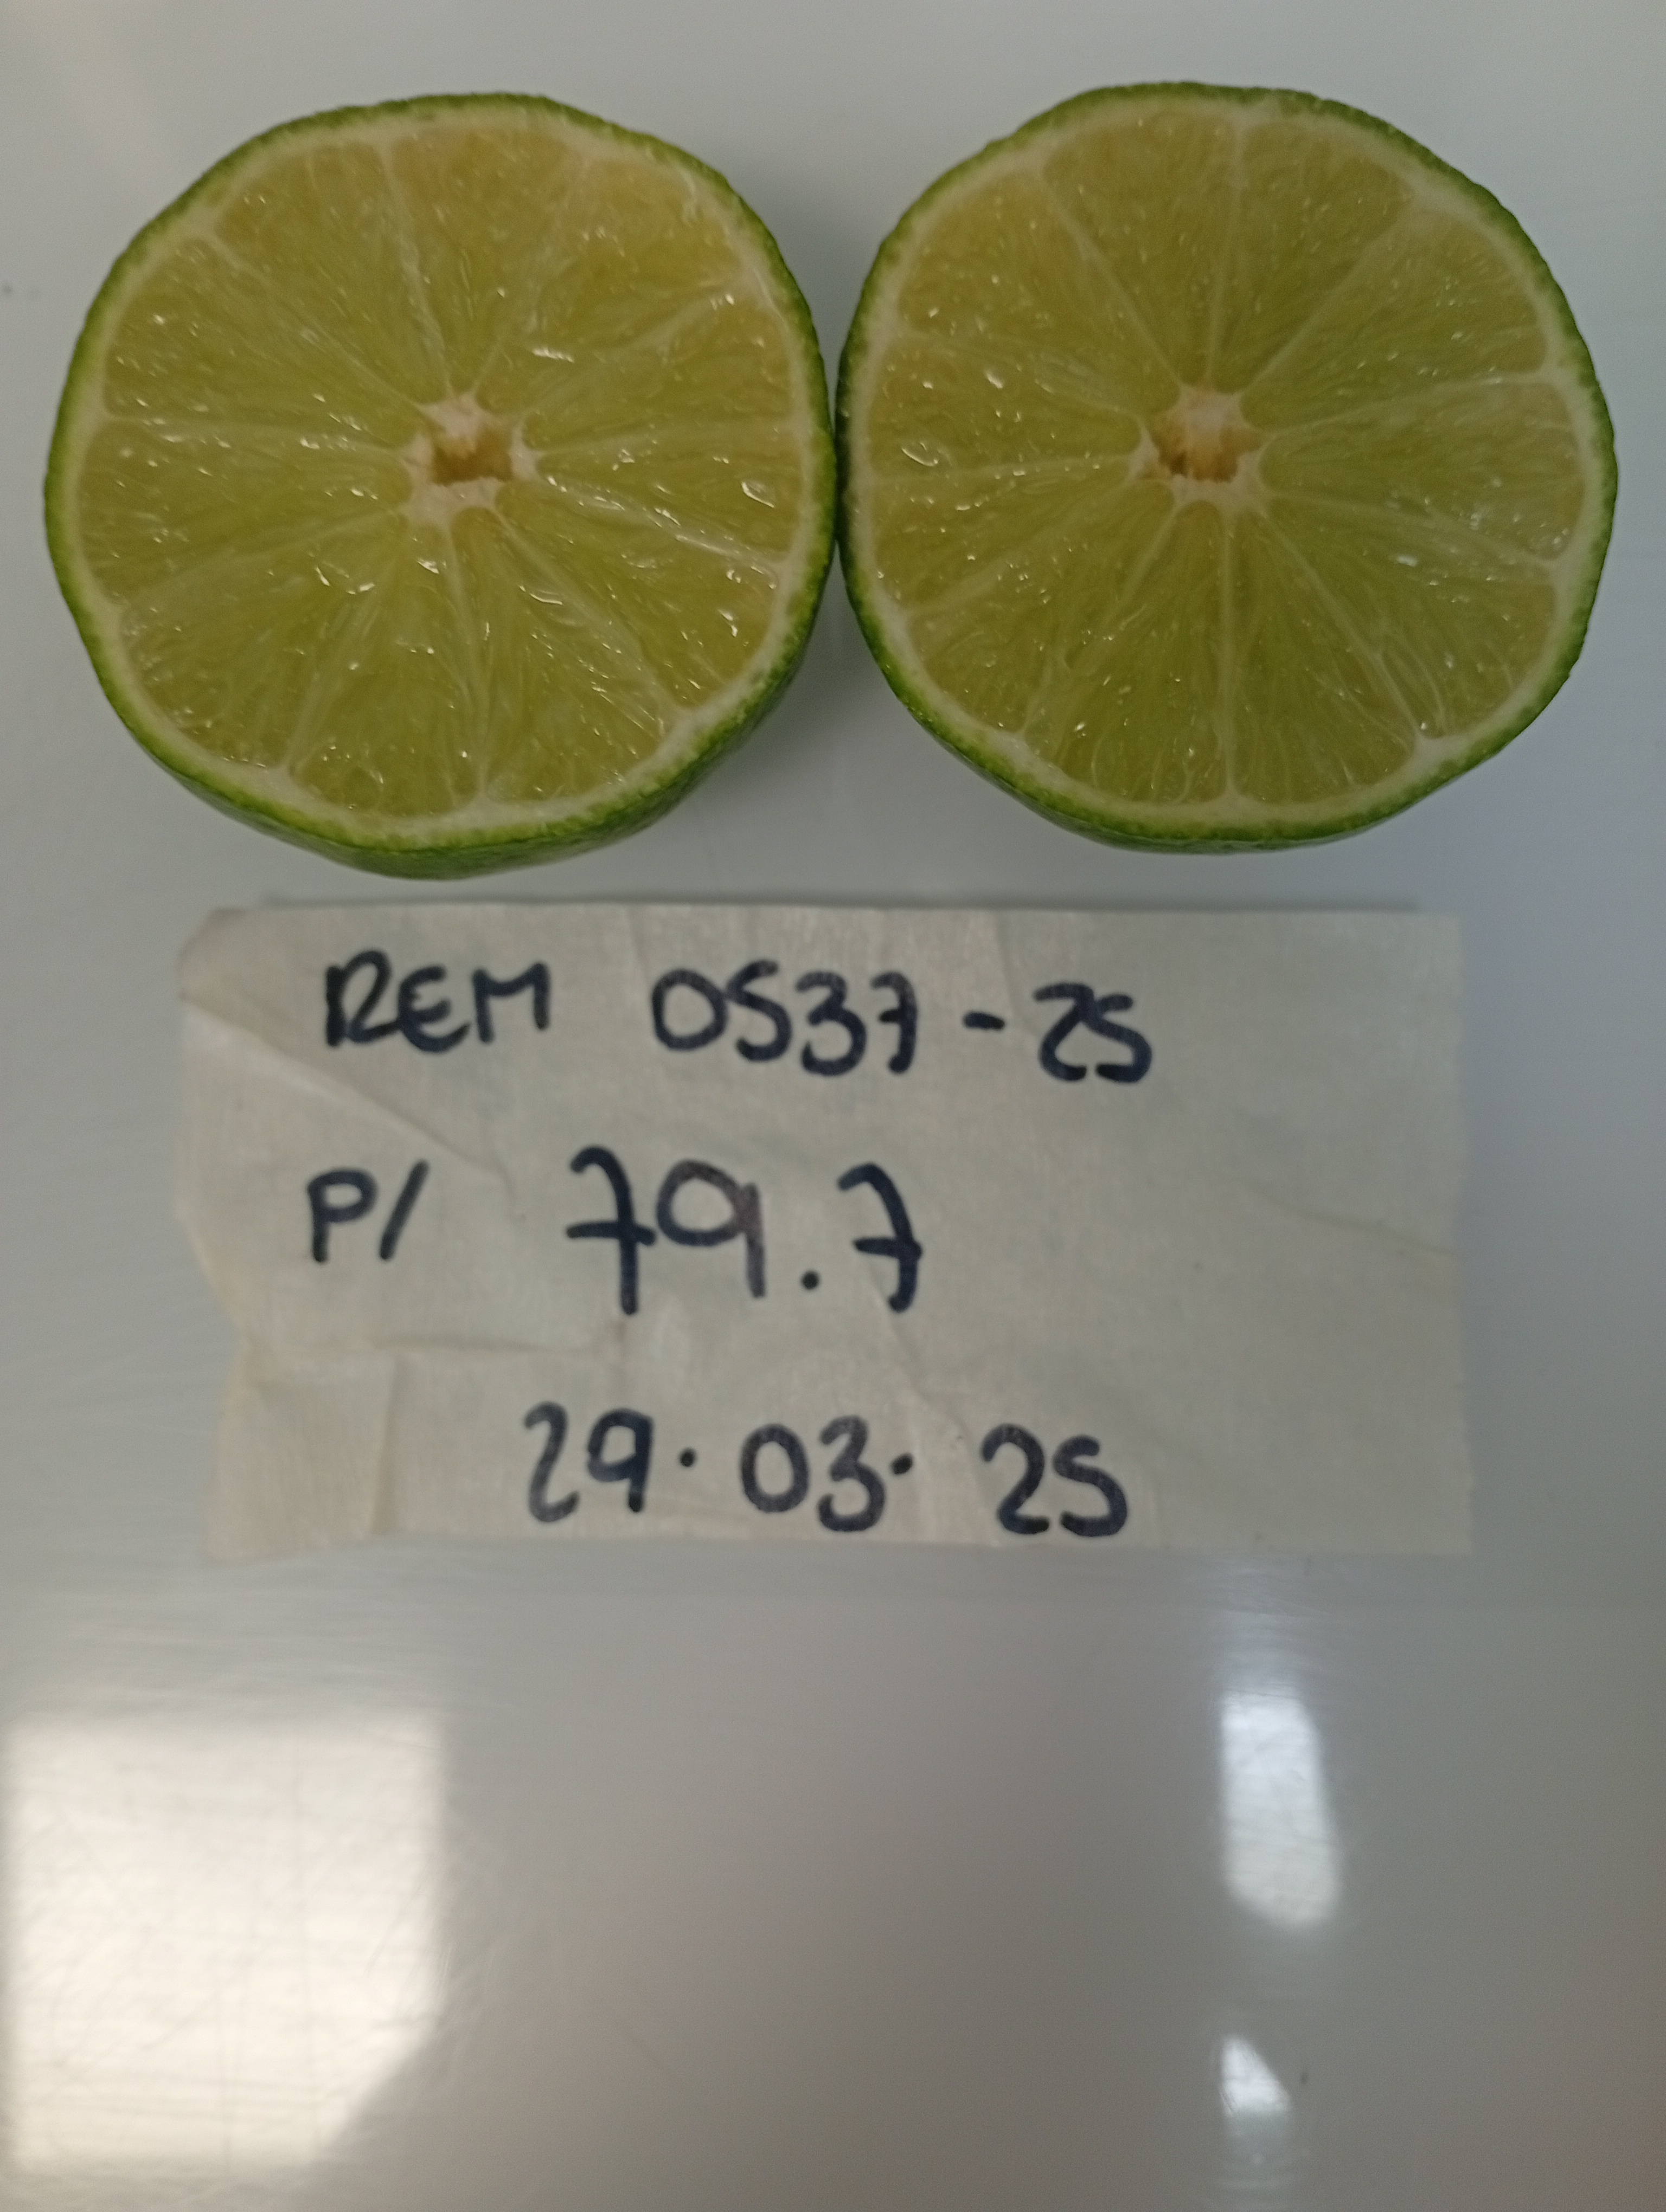 REM 0537-25
P/ 79.7
29.03.25